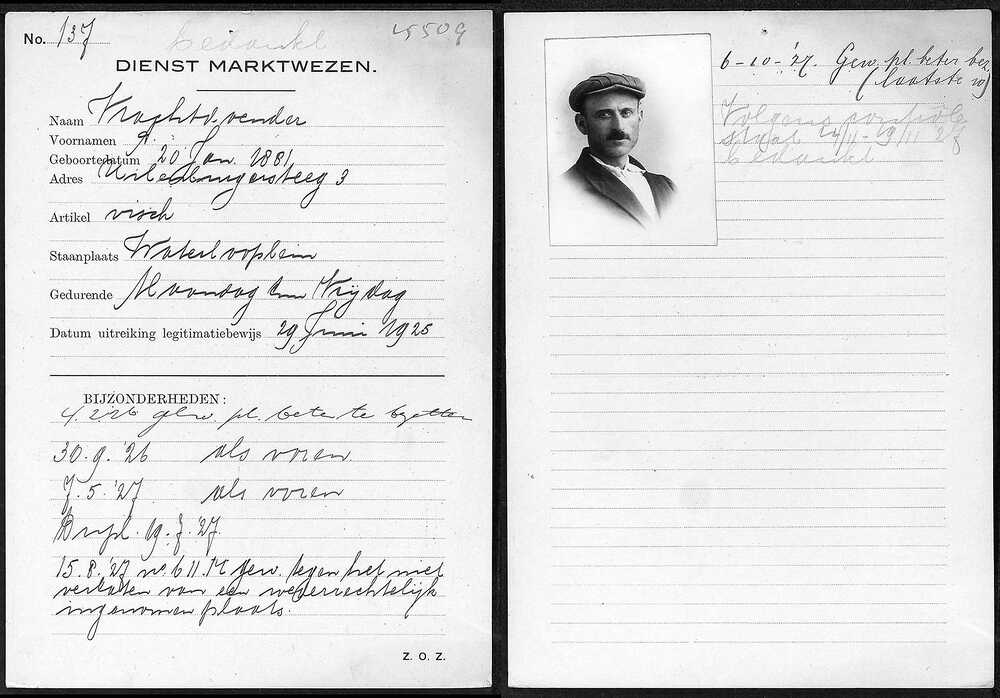 No. 137
bedankt
4550g
DIENST MARKTWEZEN.
Naam Vrachtdoender
Voornamen A
Geboortedatum 20 Jan. 1881
Adres Uilenburgersteeg 3
Artikel visch
Staanplaats Waterlooplein
Gedurende Maandag t/m Vrijdag
Datum uitreiking legitimatiebewijs 29 Juni 1925
BIJZONDERHEDEN:
4.2.26 gew. pl. beter te bezetten
30.9.'26 als voren.
7.5.'27 als voren
19.7.'27.
15.8.'27 no. 611. M gew. tegen het niet
verlaten van een wederrechtelijk
ingenomen plaats.
Z. O. Z.
6-10-'27. Gew. pl. beter bez.
(laatste w)
Volgens controle
staat 14/11-19/11 27
bedankt